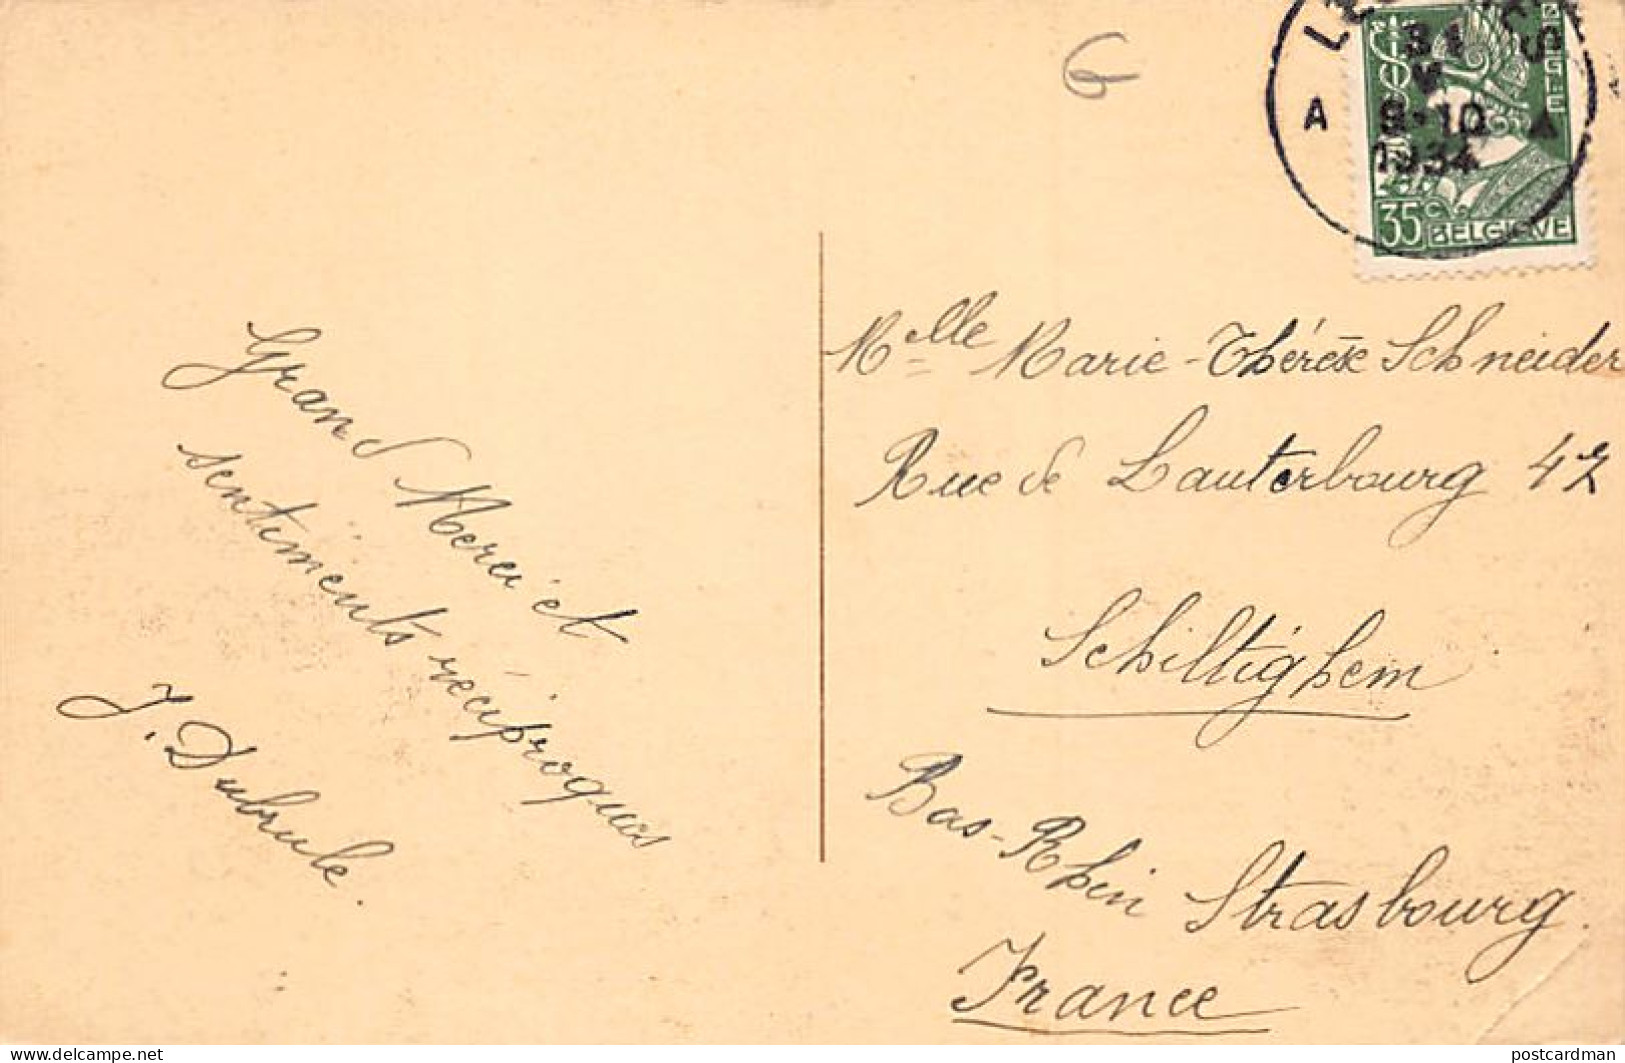 6
31
V
A 9-10
1934
35 c
BELGIQUE
Grand Merci et
sentiments réciproques
J. Dubrule.
Melle Marie-Thérèse Schneider
Rue de Lauterbourg 47
Schiltighem
Bas-Rhin Strasbourg.
France
delcampe.net
postcardman